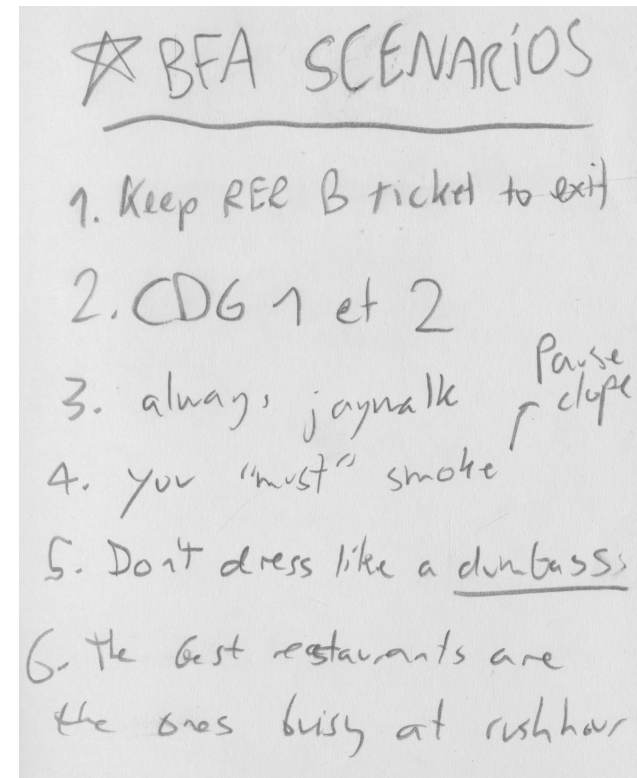 ☆ BFA SCENARIOS
1. Keep RER B ticket to exit
2. CDG 1 et 2
Pause
3. always jaywalk clope
4. you "must" smoke
5. Don't dress like a dumbass
6. The best restaurants are
the ones buisy at rush hour